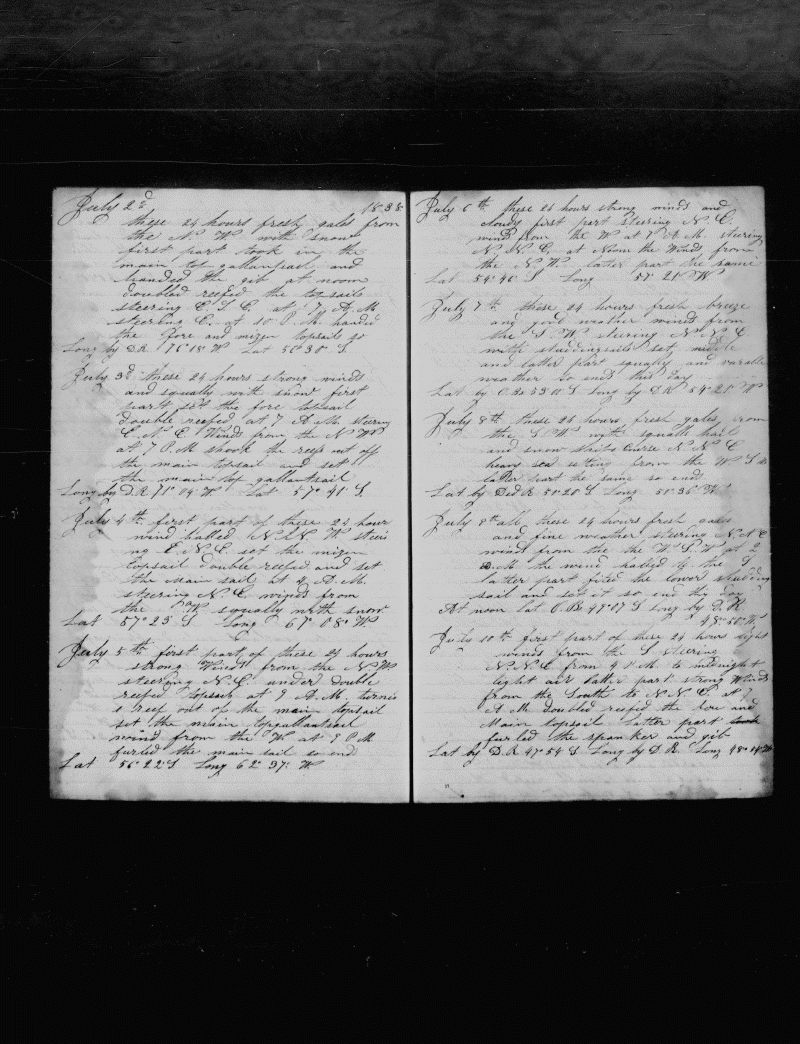 July 2d 1838
these 24 hours fresh gales from
the N. W. with snow
first part took in the
main top gallantsail and
handed the gib at noon
doubled reefed the topsails
steering E. S. E. at 7 A. M
steering E. at 10 P. M. handed
the fore and mizen topsails so
Long by D R 76° 18' W Lat 56° 30' S.
July 3d these 24 hours strong winds
and squaly with snow first
part set the fore topsail
double reefed at 7 A. M. steering
E. N. E. Winds from the N W
at 7 P M shook the reefs out off
the main topsail and set
the main top gallantsail
Long by D. R 71° 04' W Lat 57° 41' S.
July 4th first part of these 24 hour
wind halled N. N. W steeri
ng E N E set the mizen
topsail double reefed and set
the Main sail at 4 A. M.
steering N E. winds from
the W squally with snow
Lat 57° 23' S Long 67° 08' W
July 5th first part of these 24 hours
strong Winds from the N W
steering N E. under double
reefed topsails at 7 A. M. turned
a reef out of the main topsail
set the main topgallantsail
wind from the W. at 7 P M
furled the main sail so end
Lat 56° 22' S Long 62° 37' W
July 6th these 24 hours strong winds and
cloudy first part steering N. E.
wind from the W at 7 A. M. steering
N. N. E. at Noon the Winds from
the N. W. later part the same
Lat 54° 40' S Long 57° 21' W
July 7th these 24 hours fresh breeze
and good weather winds from
the S W steering N N E
with studdingsails set middle
and latter part squaly and variable
weather so ends this day
Lat by O. Bs 53° 01' S Long by D R 54° 21' W
July 8th these 24 hours fresh gales from
the S W with squalls hail
and snow Corse N N E
heavy sea seting from the W S W
latter part the same so end
Lat by Ded R 50° 20' S Long 50° 36' W
July 8th all these 24 hours fresh gales
and fine weather steering N. N E
winds from the the W. S. W at 2
P. M the wind halled to the S
latter part fited the lower studing
sail and set it so end the day
At noon lat O. Bs 49° 07' S long by D. R
48° 50' W.
July 10th first part of these 24 hours light
winds from the S steering
N. N E from 9 P M to midnight
light air latter part strong Winds
from the South to N N E. at 7
A M doubled reefed the fore and
Main topsail latter part
furled the spanker and gib
Lat by D. R 47° 54' S Long by D R. Long 48° 14' W